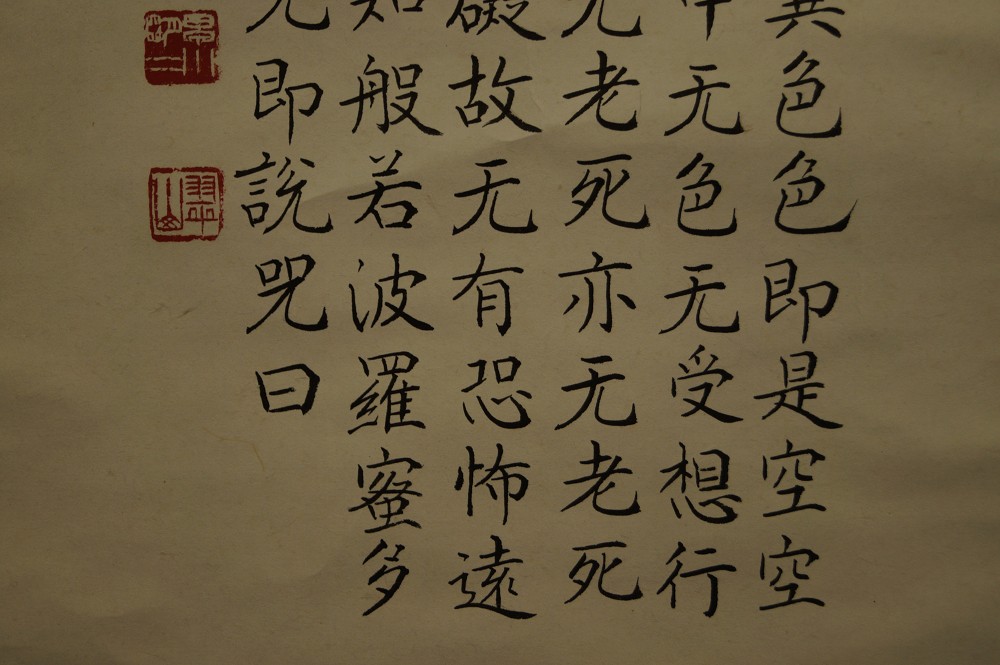 異色色即是空空
中无色无受想行
无老死亦无老死
礙故无有恐怖遠
知般若波羅蜜多
咒即說咒曰